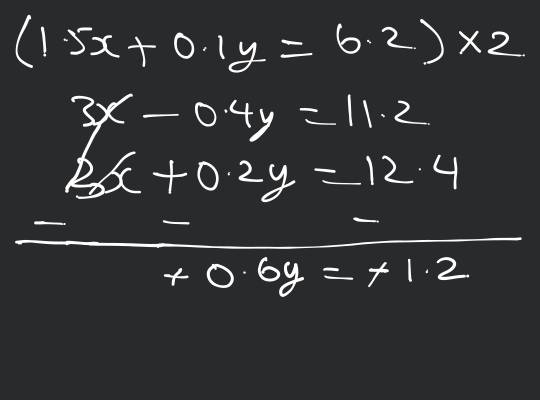 (1.5x + 0.1y = 6.2) × 2
3x - 0.4y = 11.2
3x + 0.2y = 12.4
- - -
+ 0.6y = + 1.2